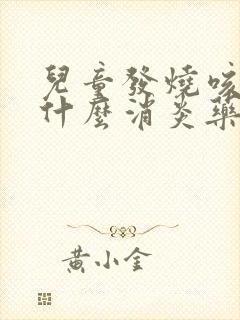 兒童發燒咳
什麼消炎藥
黃小金